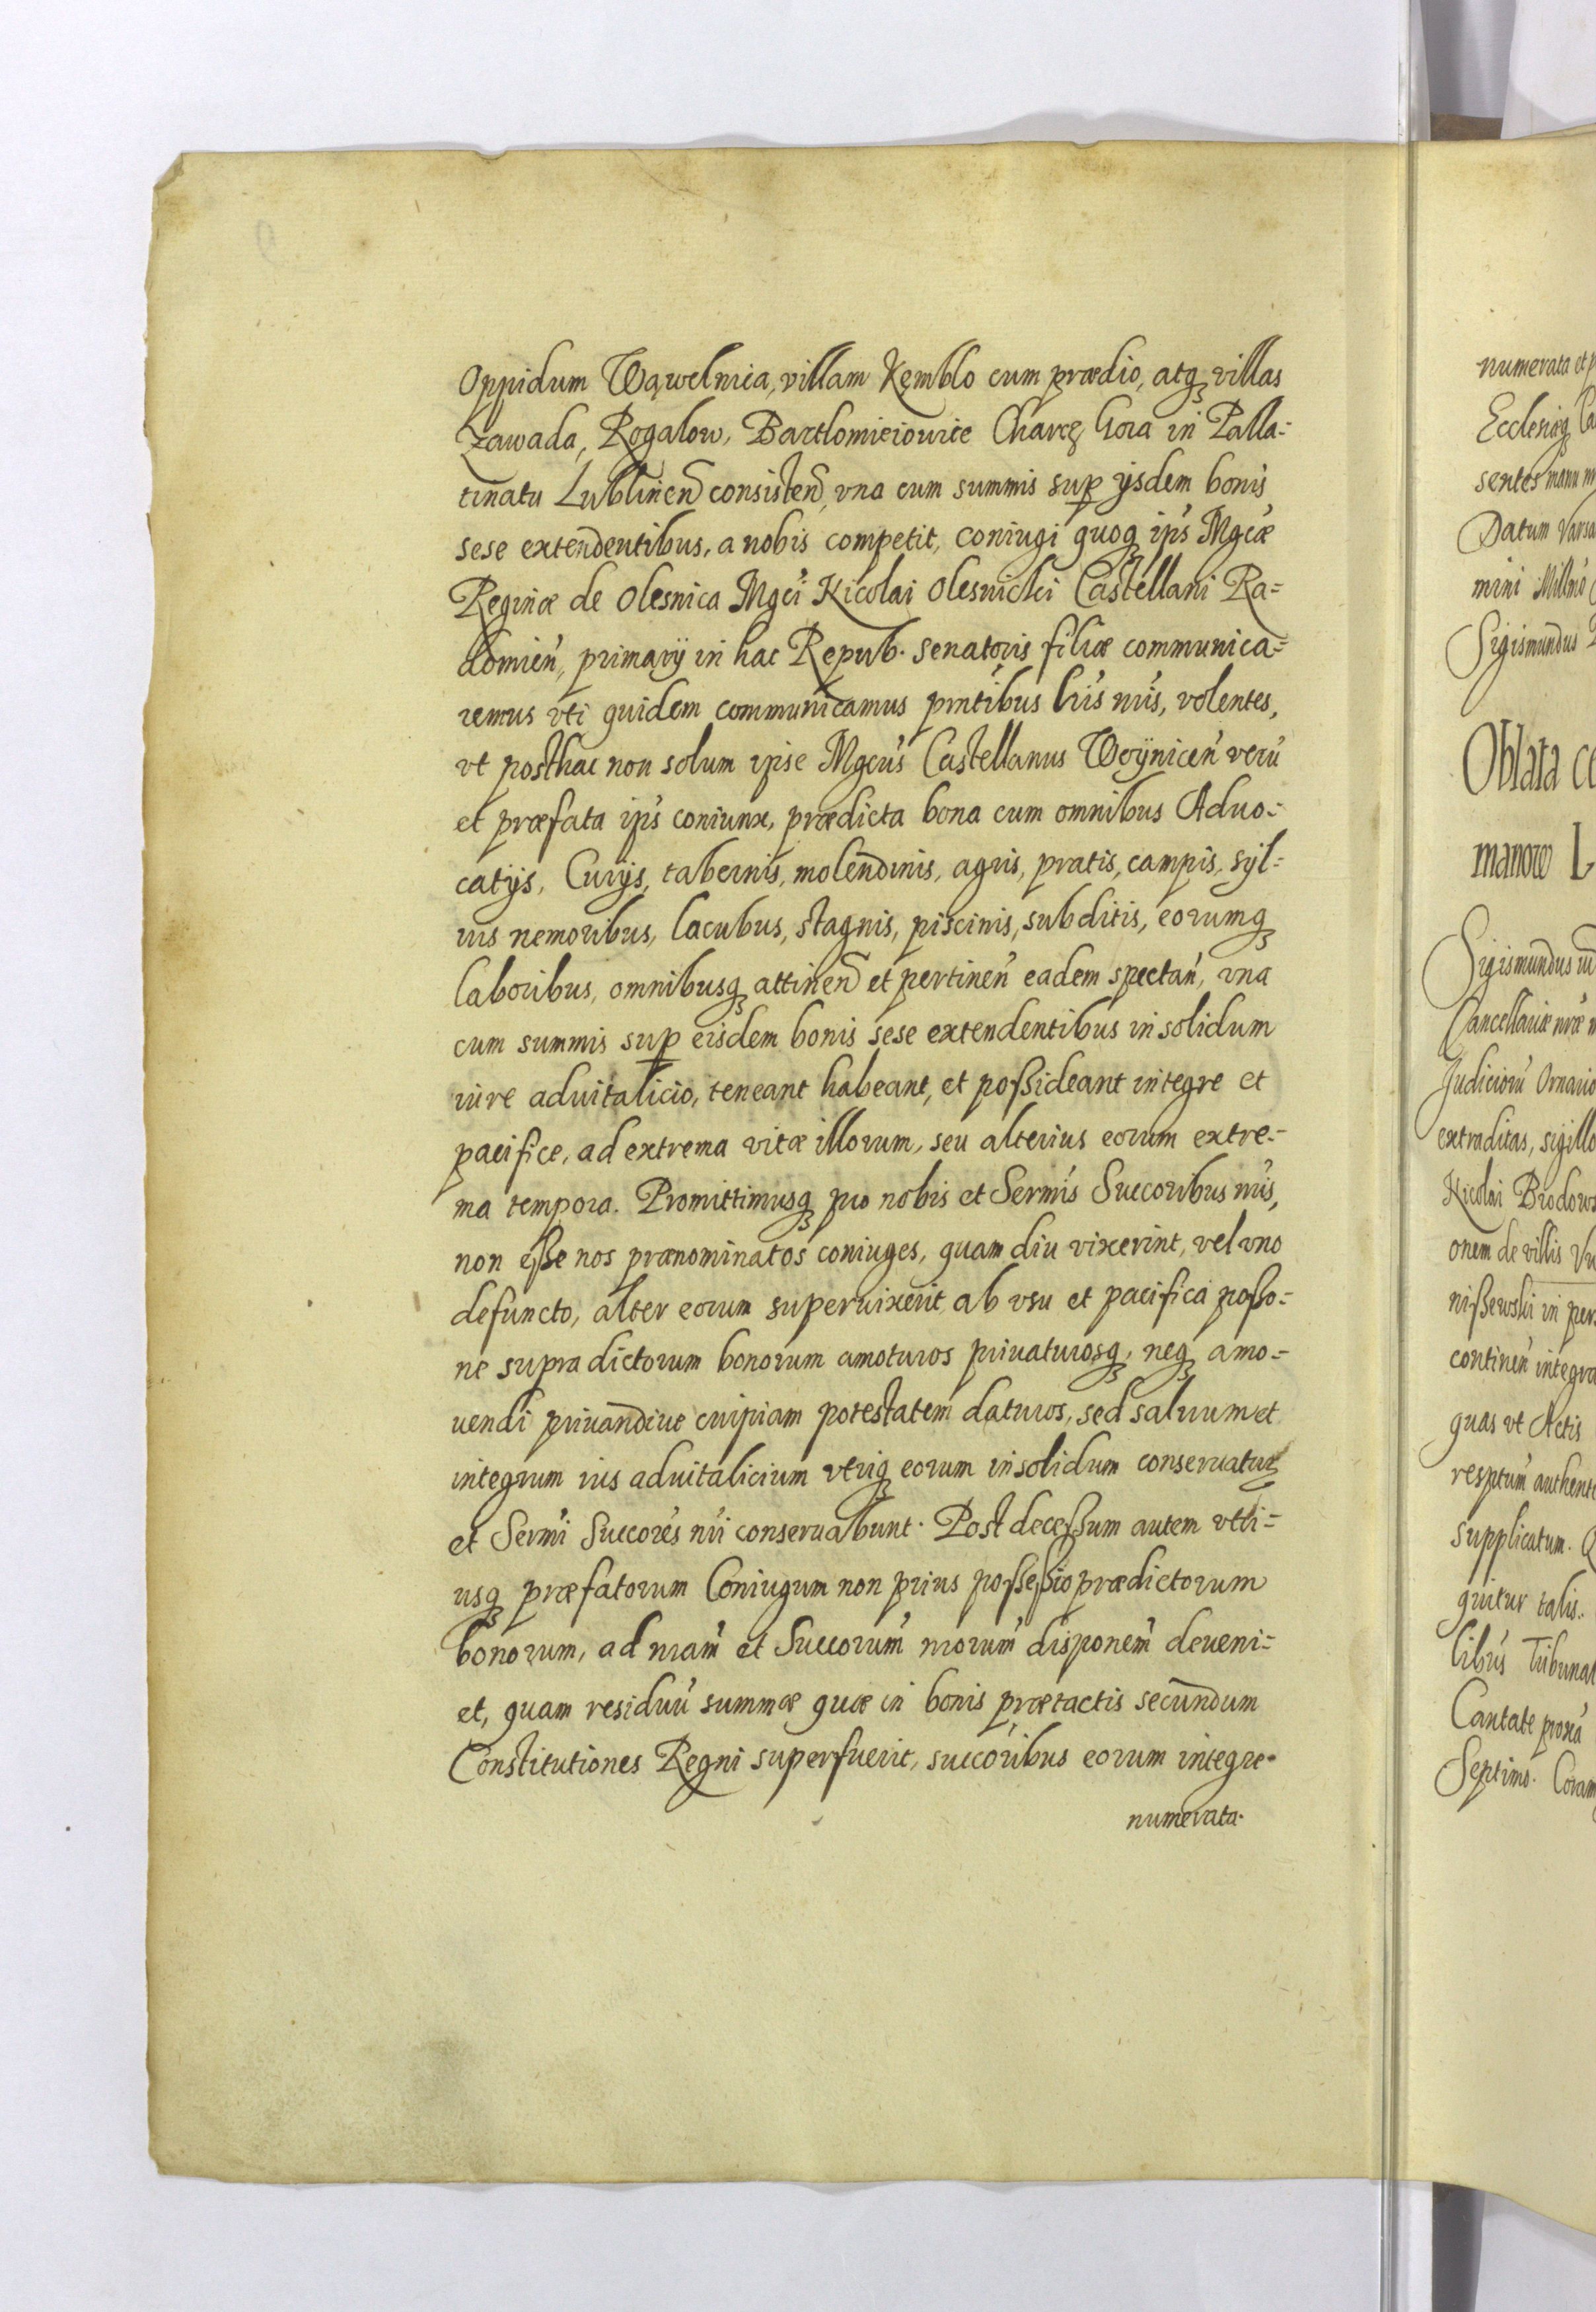 Oppidum Wąwelnica, villam Kęmblo cum prædio, atq villas
Zawada, Rogalow, Bartlomieiowice Charcz Gora in Palla=
tinatu Lublinen consisten, vna cum summis sup ijsdem bonis
sese extendentibus, a nobis competit, coniugi quoq ips Mgcæ
Reginæ de Olesnica Mgci Nicolai Olesnicki Castellani Ra=
domien, primarij in hac Repub. senatoris filiæ communica=
remus vti quidem communicamus pntibus lris nris, volentes,
vt posthac non solum ipse Mgcus Castellanus Woynicen verū
et præfata ips coniunx, prædicta bona cum omnibus Aduo=
catijs, Curijs, tabernis, molendinis, agris, pratis, campis, syl=
uis nemoribus, lacubus, stagnis, piscinis, subditis, eorumq
laboribus, omnibusq attinen et pertinen eadem spectan, vna
cum summis sup eisdem bonis sese extendentibus in solidum
iure aduitalicio, teneant habeant, et poßideant integre et
pacifice, ad extrema vitæ illorum, seu alterius eorum extre=
ma tempora. Promittimusq pro nobis et Sermis Succoribus nris,
non eße nos prænominatos coniuges, quam diu vixerint, vel vno
defuncto, alter eorum superuixerit, ab vsu et pacifica poßo=
ne supradictorum bonorum amoturos priuaturosq, neq amo=
uendi priuandiue cuipiam potestatem daturos, sed saluum et
integrum ius aduitalicium vtriq eorum in solidum conseruatur
et Sermi Succores nri conseruabunt. Post deceßum autem vtri=
usq præfatorum Coniugum non prius posseßio prædictorum
bonorum, ad nram et Succorum nrorum disponem deueni=
et, quam residuū summæ quæ in bonis prætactis secundum
Constitutiones Regni superfuerit, succoribus eorum integre
numerata.
numerata et
Ecclesiæq
sentes manu
Datum Varsa
mini Millmo
Sigismundus
Oblata
manow
Sigismundus
Cancellariæ nræ
Judiciorū Ornario
extraditas, sigillo
Nicolai Brodows
onem de villis
nißewski in per
continen integra
quas vt Actis
resptum authent
supplicatum.
quitur talis.
libus Tribunal
Cantate proxa
Septimo. Coram